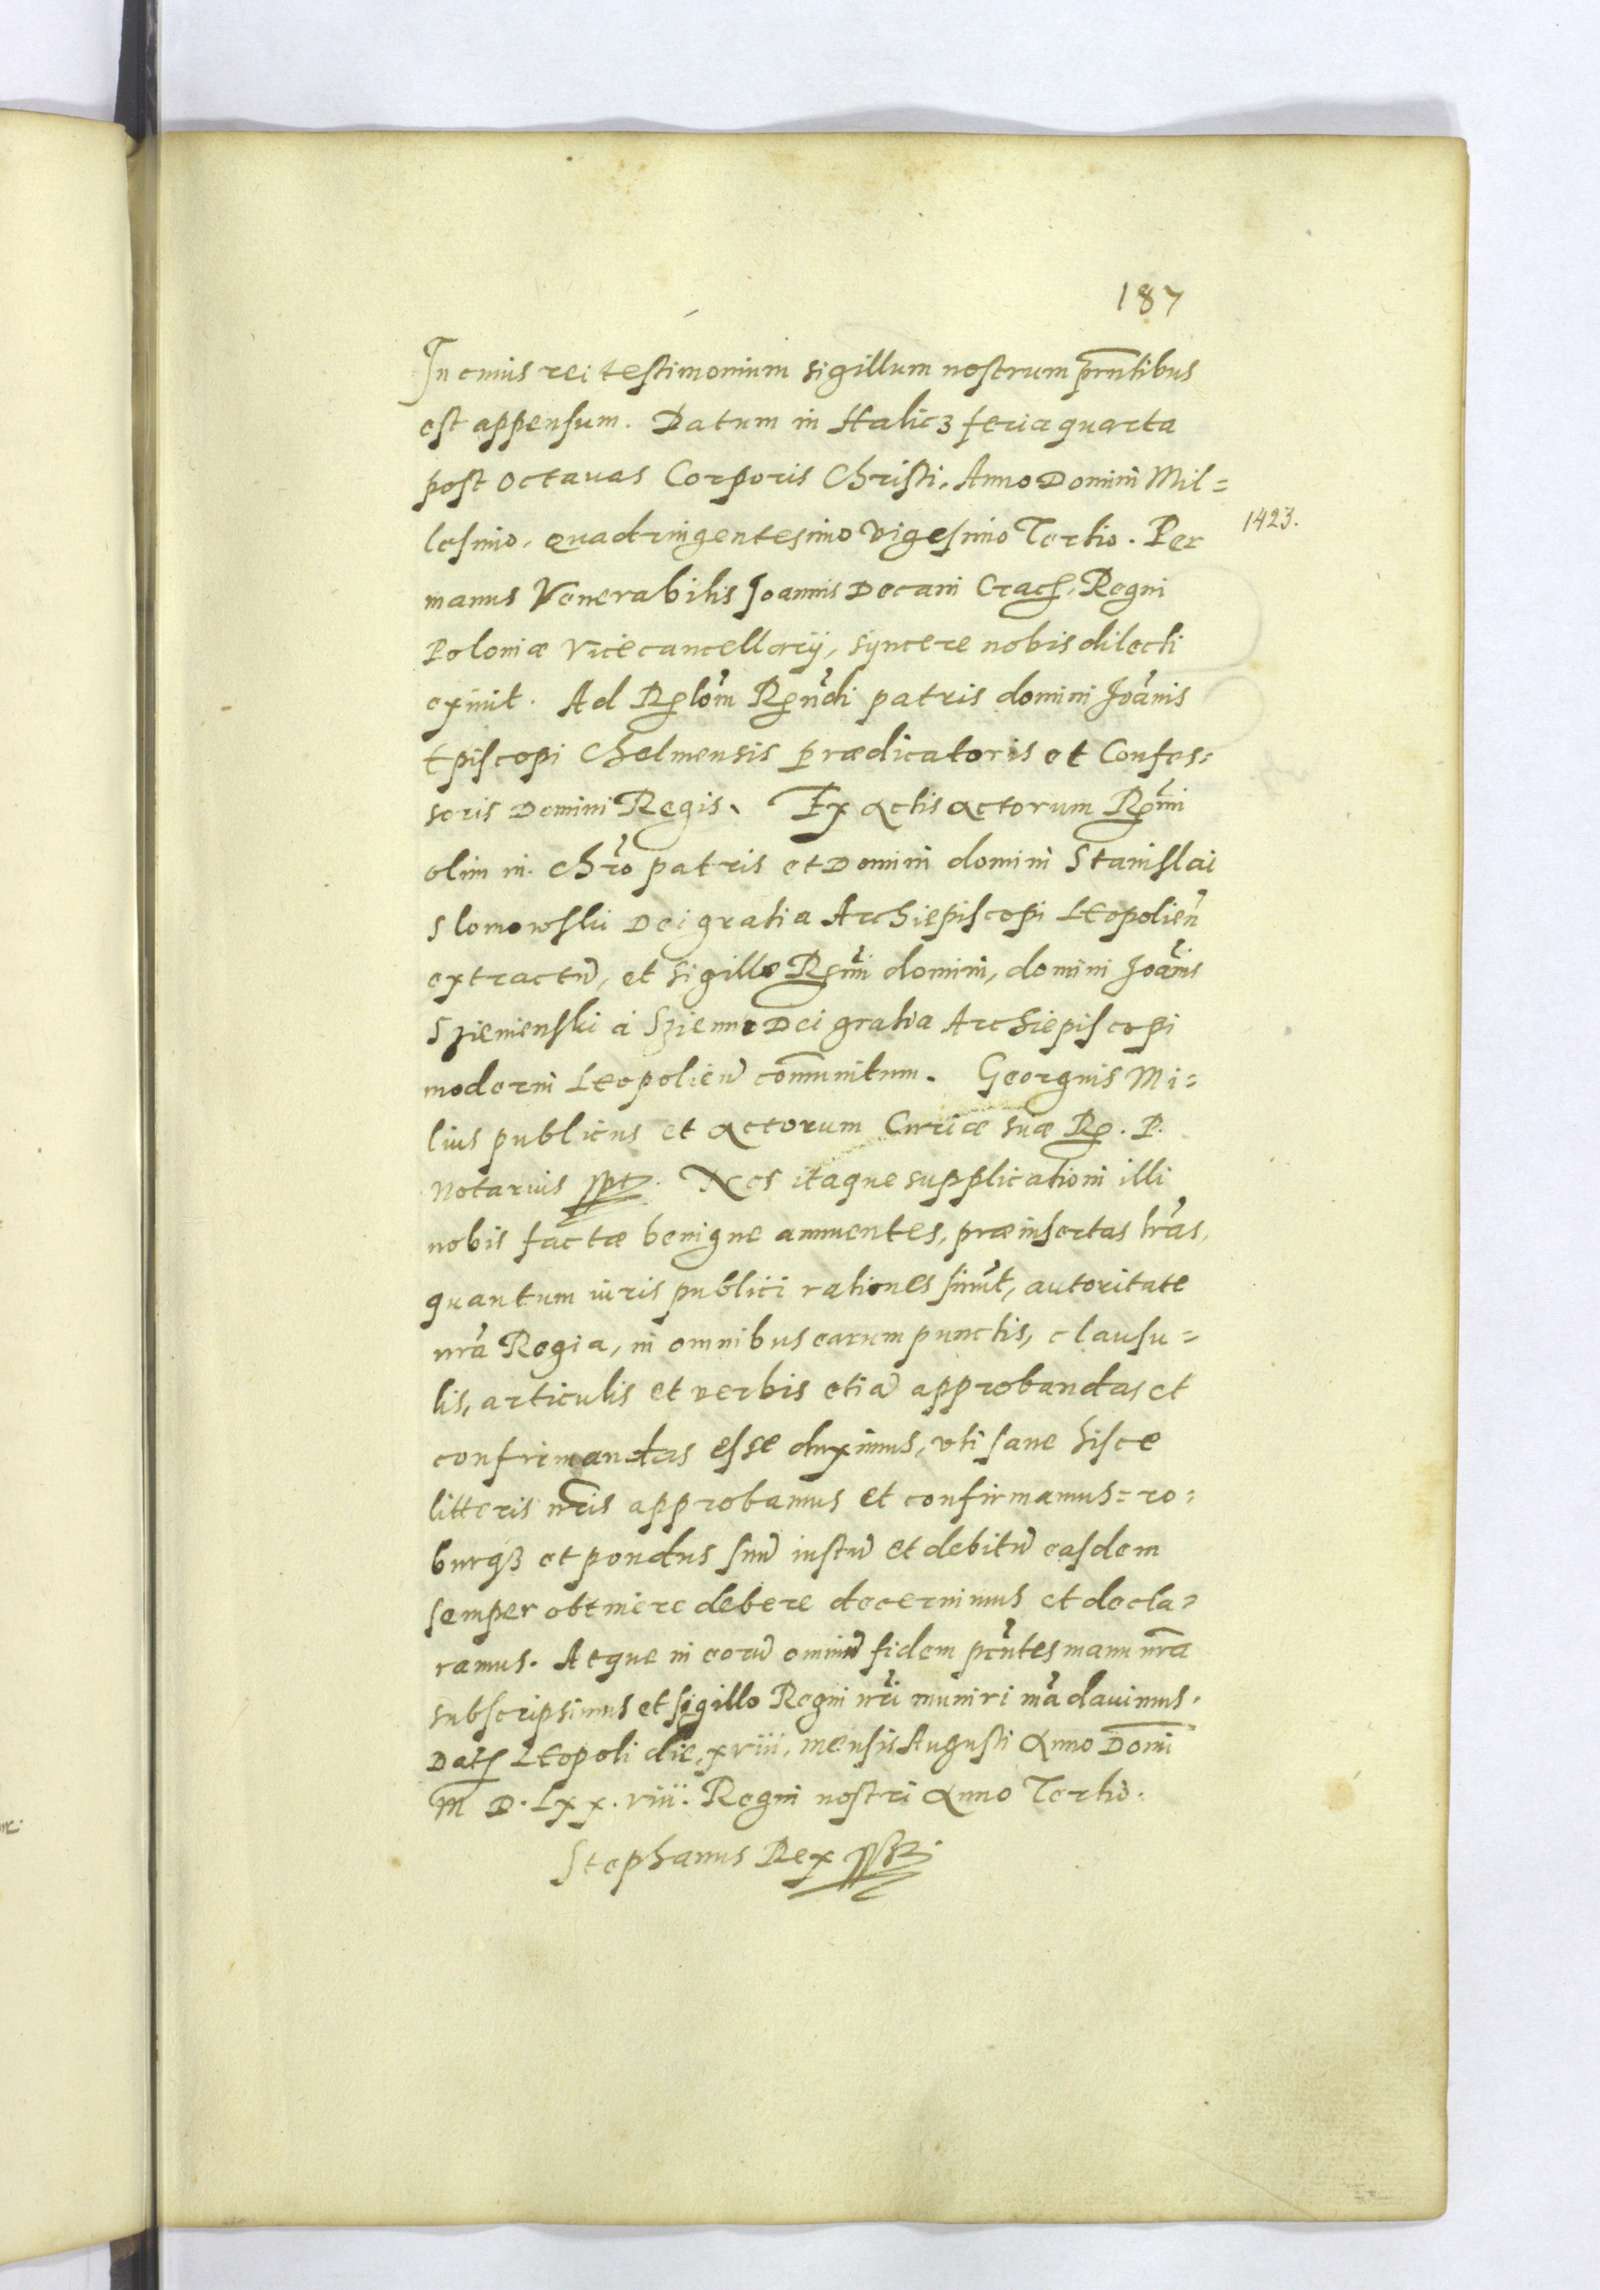 187
In cuius rei testimonium sigillum nostrum prntibus
est appensum. Datum in Halicz feria quarta
post octauas Corporis Christi, Anno Domini Mil=
lesimo, quadringentesimo vigesimo Tertio. Per
1423.
manus Venerabilis Joannis Decani Crac, Regni
Poloniæ Vicecancellarij, syncere nobis dilecti
exiuit. Ad Rlom Rndi patris domini Joanis
Episcopi Chelmensis prædicatoris et Confes=
soris Domini Regis. Ex actis actorum Rmi
olim in Chro patris et Domini domini Stanislai
Slomowski Dei gratia Archiepiscopi Leopolien
extractu, et sigillo Rsmi domini, domini Joanis
Szienienski a Szienno Dei gratia Archiepiscopi
moderni Leopolien communitum. Georgius Mi=
lius publicus et actorum Curiæ suæ R. P.
Notarius sspt. Nos itaque supplicationi illi
nobis factæ benigne annuentes, præinsertas lras,
quantum iuris publici rationes sinut, autoritate
nra Regia, in omnibus earum punctis, clausu=
lis, articulis et verbis etia approbandas et
confirmandas esse duximus, vti sane hisce
litteris nris approbamus et confirmamus= ro=
burq3 et pondus suu iustu et debitu easdem
semper obtinere debere decernimus et decla=
ramus. Atque in eoru omniu fidem pntes manu nra
subscripsimus et sigillo Regni nri muniri madauimus.
Dat Leopoli die, xviii, mensis Augusti Anno Domi
M D. Lxx. viii. Regni nostri Anno Tertio.
Stephanus Rex sspt.